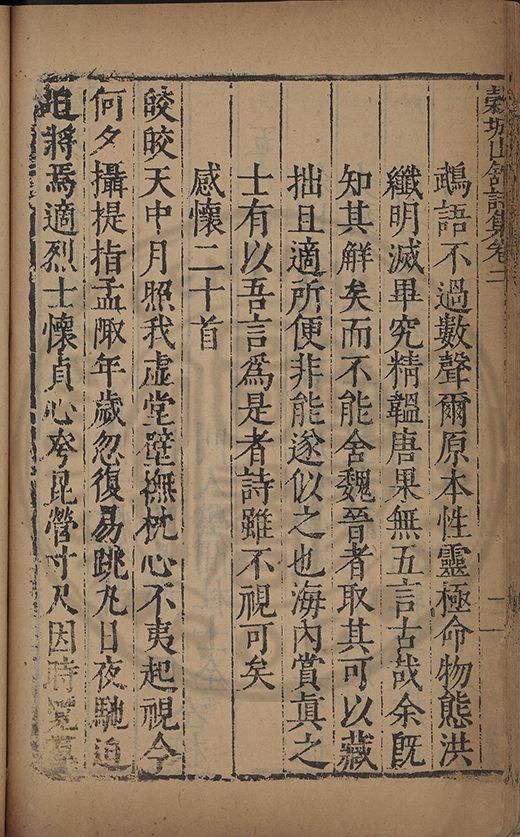 穀城山館詩集卷二
二
鵡語不過數聲爾原本性靈極命物態洪
纖明滅畢究精韞唐果無五言古哉余既
知其解矣而不能舍魏晉者取其可以藏
拙且適所便非能遂似之也海內賞真之
士有以吾言為是者詩雖不視可矣
感懷二十首
皎皎天中月照我虛堂壁撫枕心不夷起視今
何夕攝提指孟陬年歲忽復易跳丸日夜馳迫
將焉適烈士懷貞心夸毘營寸尺因時